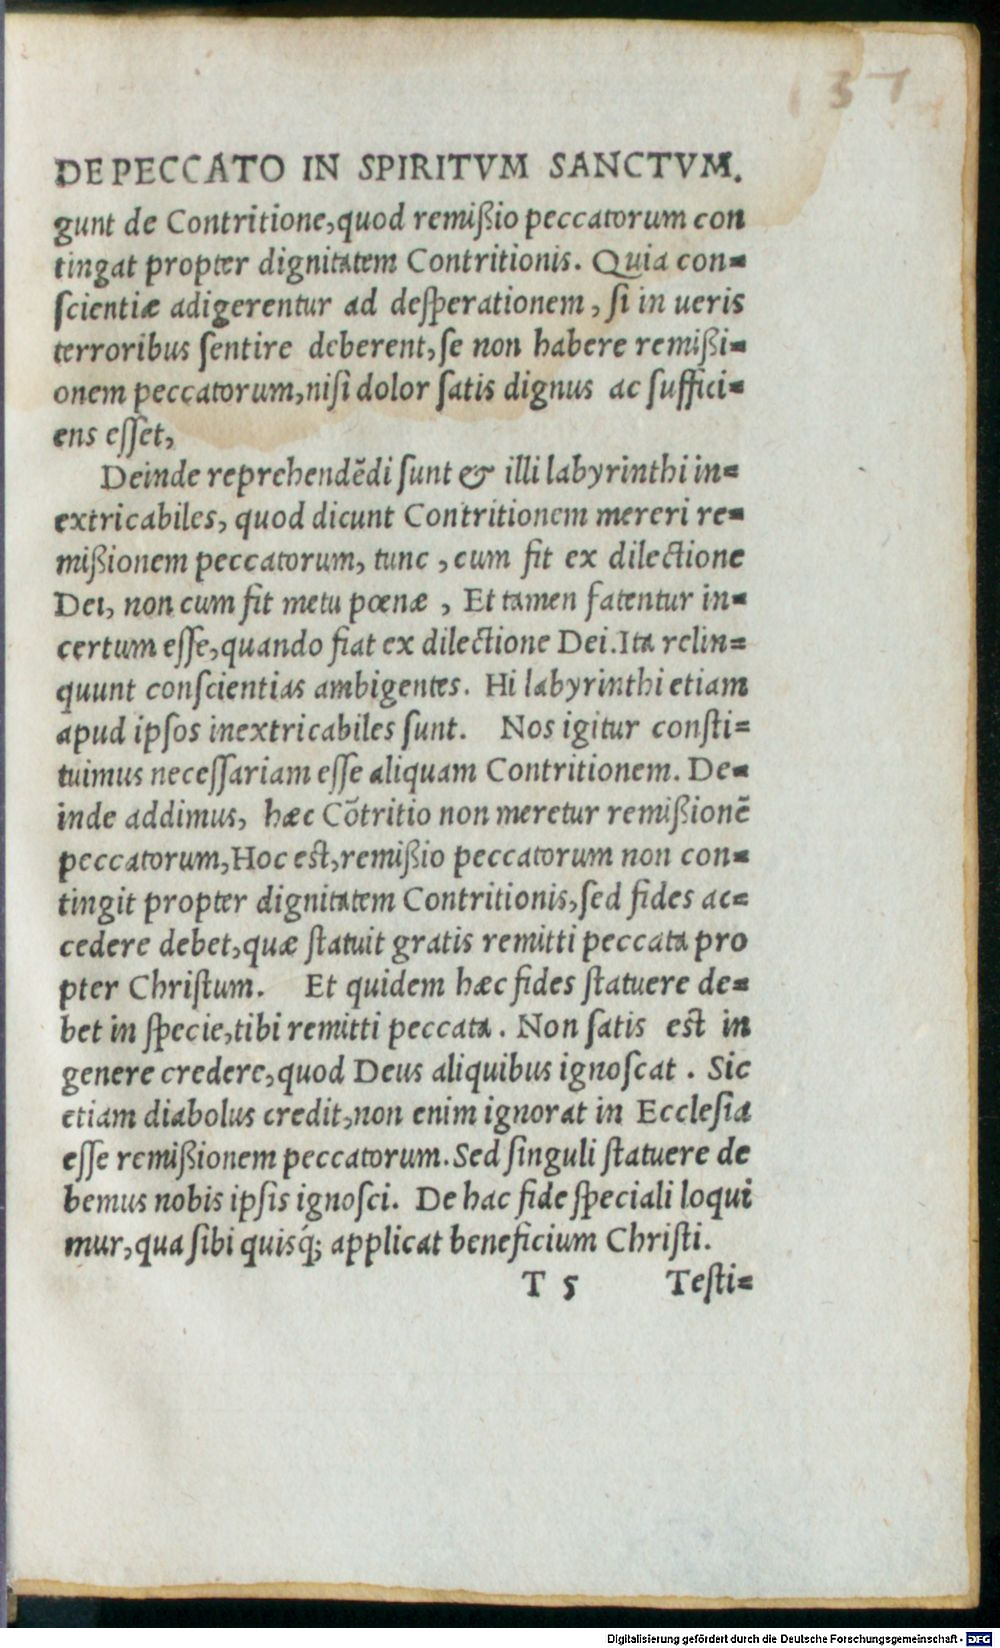 137
DE PECCATO IN SPIRITVM SANCTVM.
gunt de Contritione, quod remißio peccatorum con
tingat propter dignitatem Contritionis. Quia con=
ſcientiæ adigerentur ad deſperationem, ſi in ueris
terroribus ſentire deberent, ſe non habere remißi=
onem peccatorum, niſi dolor ſatis dignus ac ſuffici=
ens eſſet,
Deinde reprehendēdi ſunt & illi labyrinthi in=
extricabiles, quod dicunt Contritionem mereri re=
mißionem peccatorum, tunc, cum fit ex dilectione
Dei, non cum fit metu pœnæ, Et tamen fatentur in=
certum eſſe, quando fiat ex dilectione Dei. Ita relin=
quunt conſcientias ambigentes. Hi labyrinthi etiam
apud ipſos inextricabiles ſunt. Nos igitur conſti=
tuimus neceſſariam eſſe aliquam Contritionem. De=
inde addimus, hæc Cōtritio non meretur remißionē
peccatorum, Hoc est, remißio peccatorum non con=
tingit propter dignitatem Contritionis, ſed fides ac=
cedere debet, quæ ſtatuit gratis remitti peccata pro
pter Chriſtum. Et quidem hæc fides ſtatuere de=
bet in ſpecie, tibi remitti peccata. Non ſatis est in
genere credere, quod Deus aliquibus ignoſcat. Sic
etiam diabolus credit, non enim ignorat in Eccleſia
eſſe remißionem peccatorum. Sed ſinguli ſtatuere de
bemus nobis ipſis ignoſci. De hac fide ſpeciali loqui
mur, qua ſibi quisq́; applicat beneficium Chriſti.
T 5 Teſti=
Digitalisierung gefördert durch die Deutsche Forschungsgemeinschaft - DFG